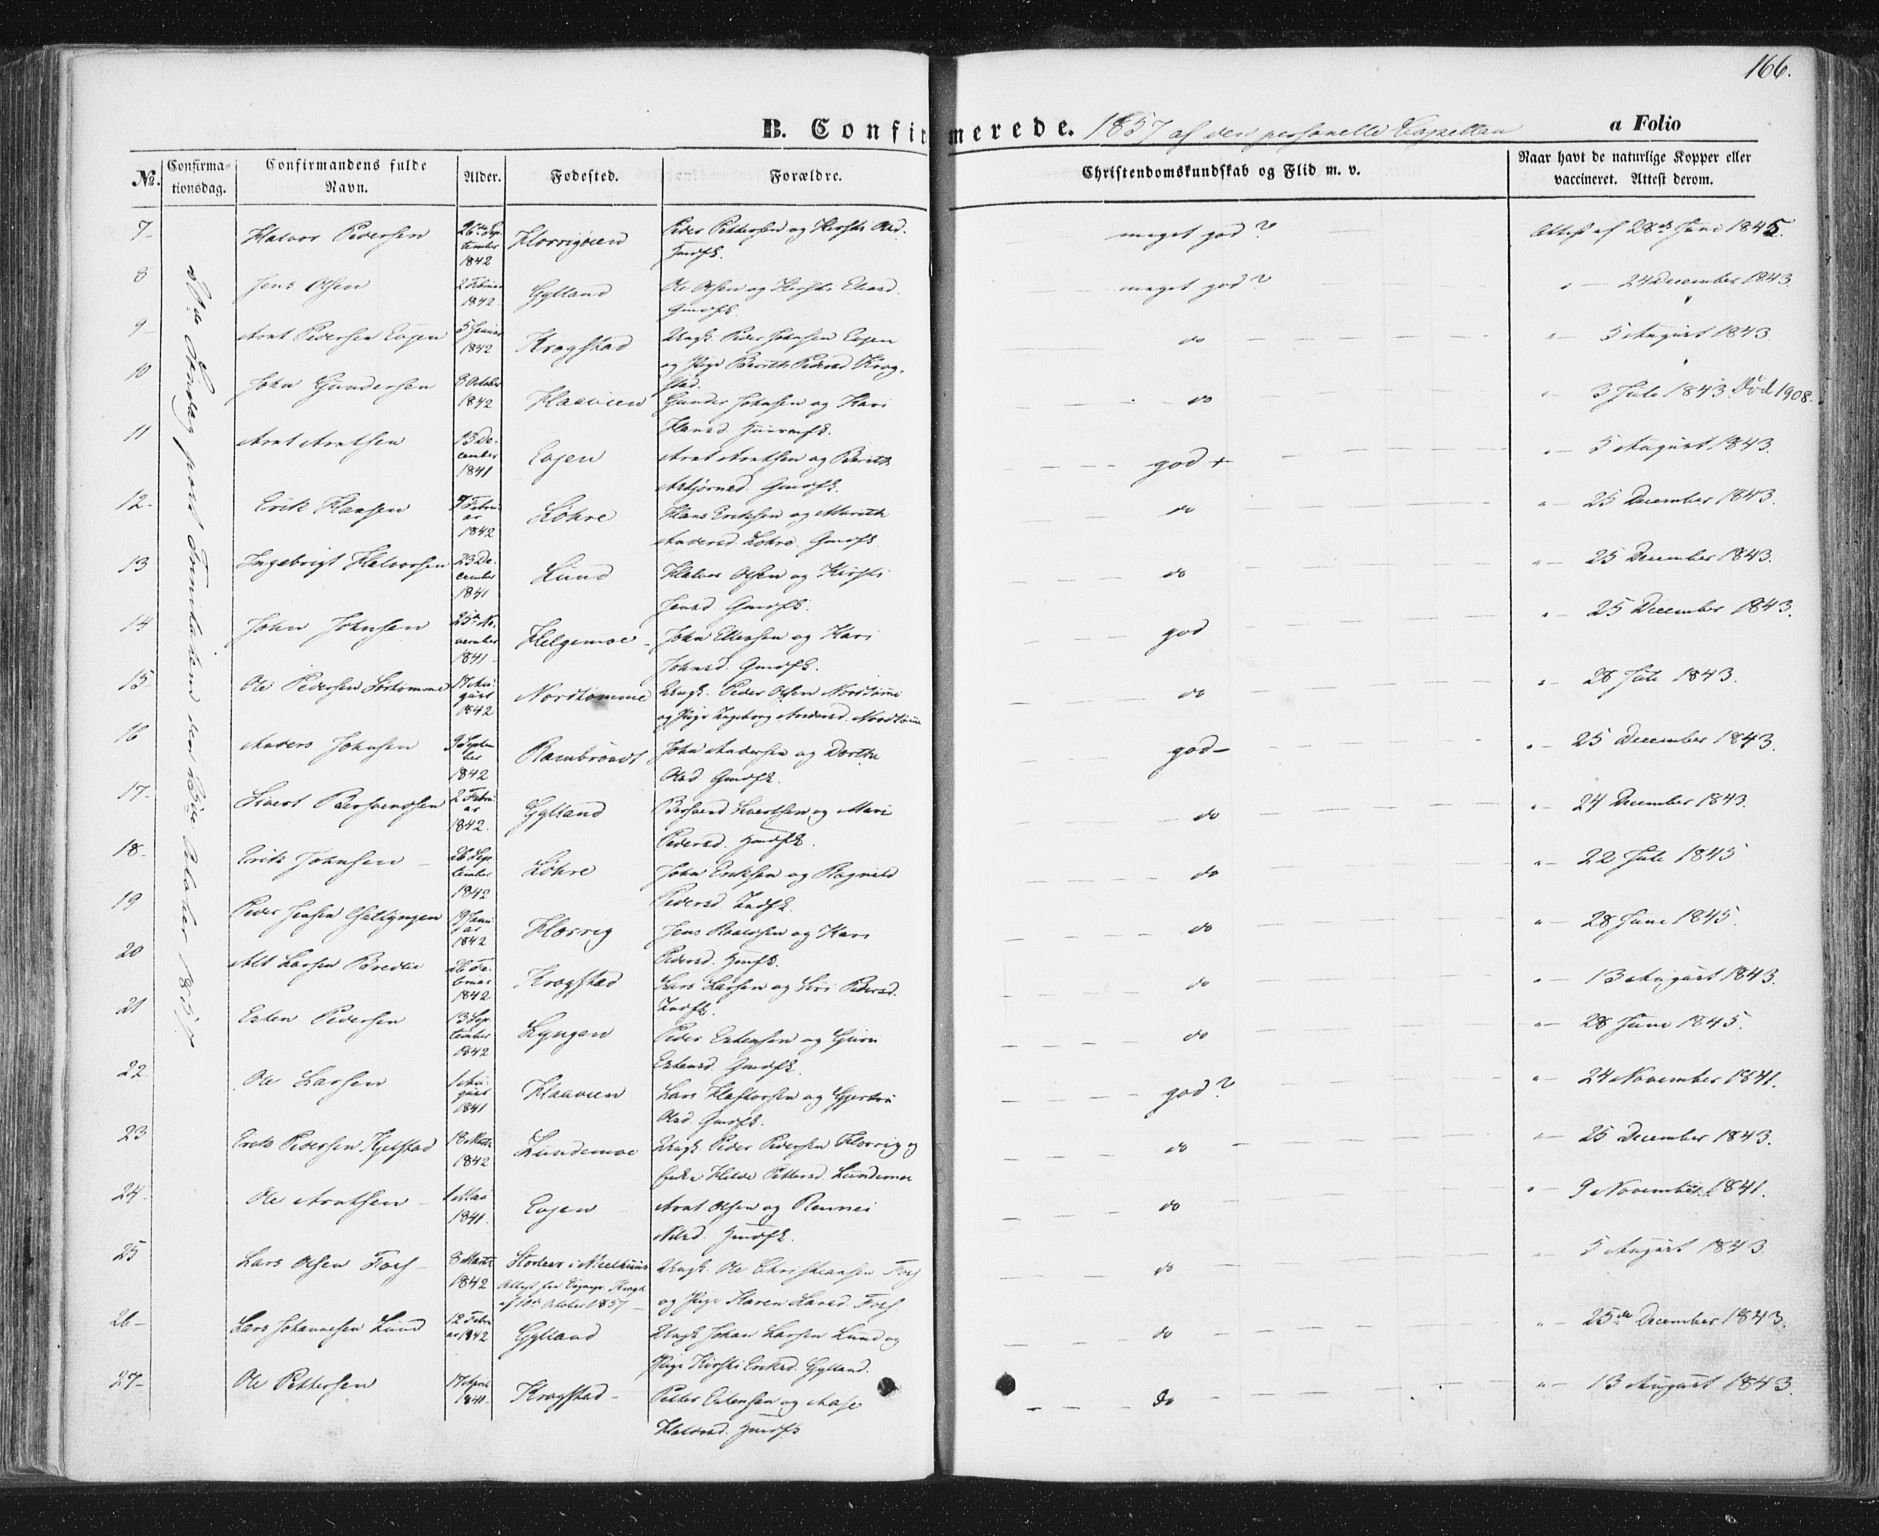 166.
B. Confirmerede. 1857 af den personelle Capellan
a Folio
№.
Confirmationsdag.
Confirmandens fulde Navn.
Alder.
Fødested.
Forældre.
Christendomskundskab og Flid m. v.
Naar havt de naturlige Kopper eller vaccineret. Attest derom.
7- Halvor Pedersen 26de September 1842 Peder Pettersen og Kirsti Olsd. meget god? Attest af 28de Juni 1845.
8 Jens Olsen 2 Februar 1842 Gylland Ole Olsen og Kirsti Gmdfk. meget god? " — 24 December 1843.
9- Arnt Pedersen Eojen 5 Januar 1842 Krogstad Ungk. Peder Johnsen Eojen og Pige Berith Pedersd. Krogstad. do " — 5 August 1843.
10 John Gundersen 8 October 1842 Haavien Gunder Johnsen og Kari Hansd. do " 3 Juli 1843. Død 1908.
11 Arnt Arntsen 13 December 1841 Eojen Arnt Arntsen og Berith Asbjørnsd. Gmdfk. god + " — 5 August 1843.
12- Erik Hansen 7 Februar 1842 Løhre Hans Eriksen og Marith Andersd. Løhre. Gmdfk. do " — 25 December 1843.
13 Ingebrigt Halvorsen 23 December 1841 Lund Halvor Olsen og Kirsti Jensd. Gmdfk. do " — 25 December 1843.
14 John Johnsen 25de November 1841- Helgemoe - John Ellevsen og Kari Johnsd. Gmdfk. god " — 25 December 1843.
15- Ole Pedersen Sørtømme 17 August 1842 Nordtømme Ungk. Peder Olsen Nordtømme og Pige Ingeborg Andersd. Nordtømme do " — 28 Juli 1843.
16 Anders Johnsen 9 September 1842 John Andersen og Dorthe Olsd. Gmdfk. god- " — 25 December 1843.
17- Sivert Bersvendsen 2 Februar 1842. Gylland Bersvend Sivertsen og Mari Pedersd. Hmdfk. do " — 24 December 1843.
18- Erik Johnsen - 26 September 1842 Løhre John Eriksen og Ragnild Pedersd. Indfk. do " — 22 Juli 1845
19 Peder Jensen 19 Januar 1842 Jens og Kari Pedersd. Hmdfk. do " — 28 Juni 1845.
20 Larsen Bredlie 26 Februar 1842 Krogstad Lars Larsen og Siri Pedersd. Indfk. do " — 13 August 1843.
21 Esten Pedersen 13 September 1842 Lyngen Peder Estensen og Guru Estensd. Gmdfk. do " — 28 Juni 1845.
22. Ole Larsen 1 August 1841 Haavien Lars og Gjertru Olsd. Gmdfk. god? " — 24 November 1841.
23 Erik Pedersen 18 Marts 1842 Lundemoe Ungk. Peder Pedersen og Enke Pettersd. Lundemoe do " — 25 December 1843.
24- Ole Arntsen - 1 Mai 1841. Eojen - Arnt Olsen og Nilsd. Hmdfk. do " — 9 November 1841.
25 Lars Olsen Foss - 8 Marts 1842 i Melhuus Attest fra af 10de October 1857 - Ungk. Ole Christiansen Foss og Pige Karen Larsd. Foss do " — 5 August 1843
26- Lars Johannesen Lund 12 Februar 1842 Gylland Ungk. Johan Larsen Lund og Pige Kirsti Eriksd. Gylland. do " — 25de December 1843.
27- Ole Pettersen 17 April 1841. Krogstad - Petter Estensen og Aase Halvorsd. Hmdfk do " — 13 August 1843.